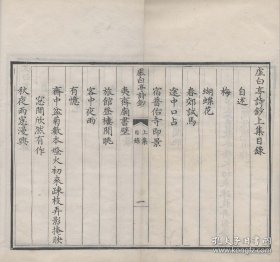 虛白亭詩鈔上集目錄
自述
梅
蝴蝶花
春郊試馬
途中口占
宿普佑寺即景
虛白亭詩鈔
上集
目錄
一
夷齊廟書壁
旅館登樓閒眺
客中夜雨
有憶
齋中盆菊數本燈火初來疎枝弄影掩映
窓間欣然有作
秋夜雨窓漫興